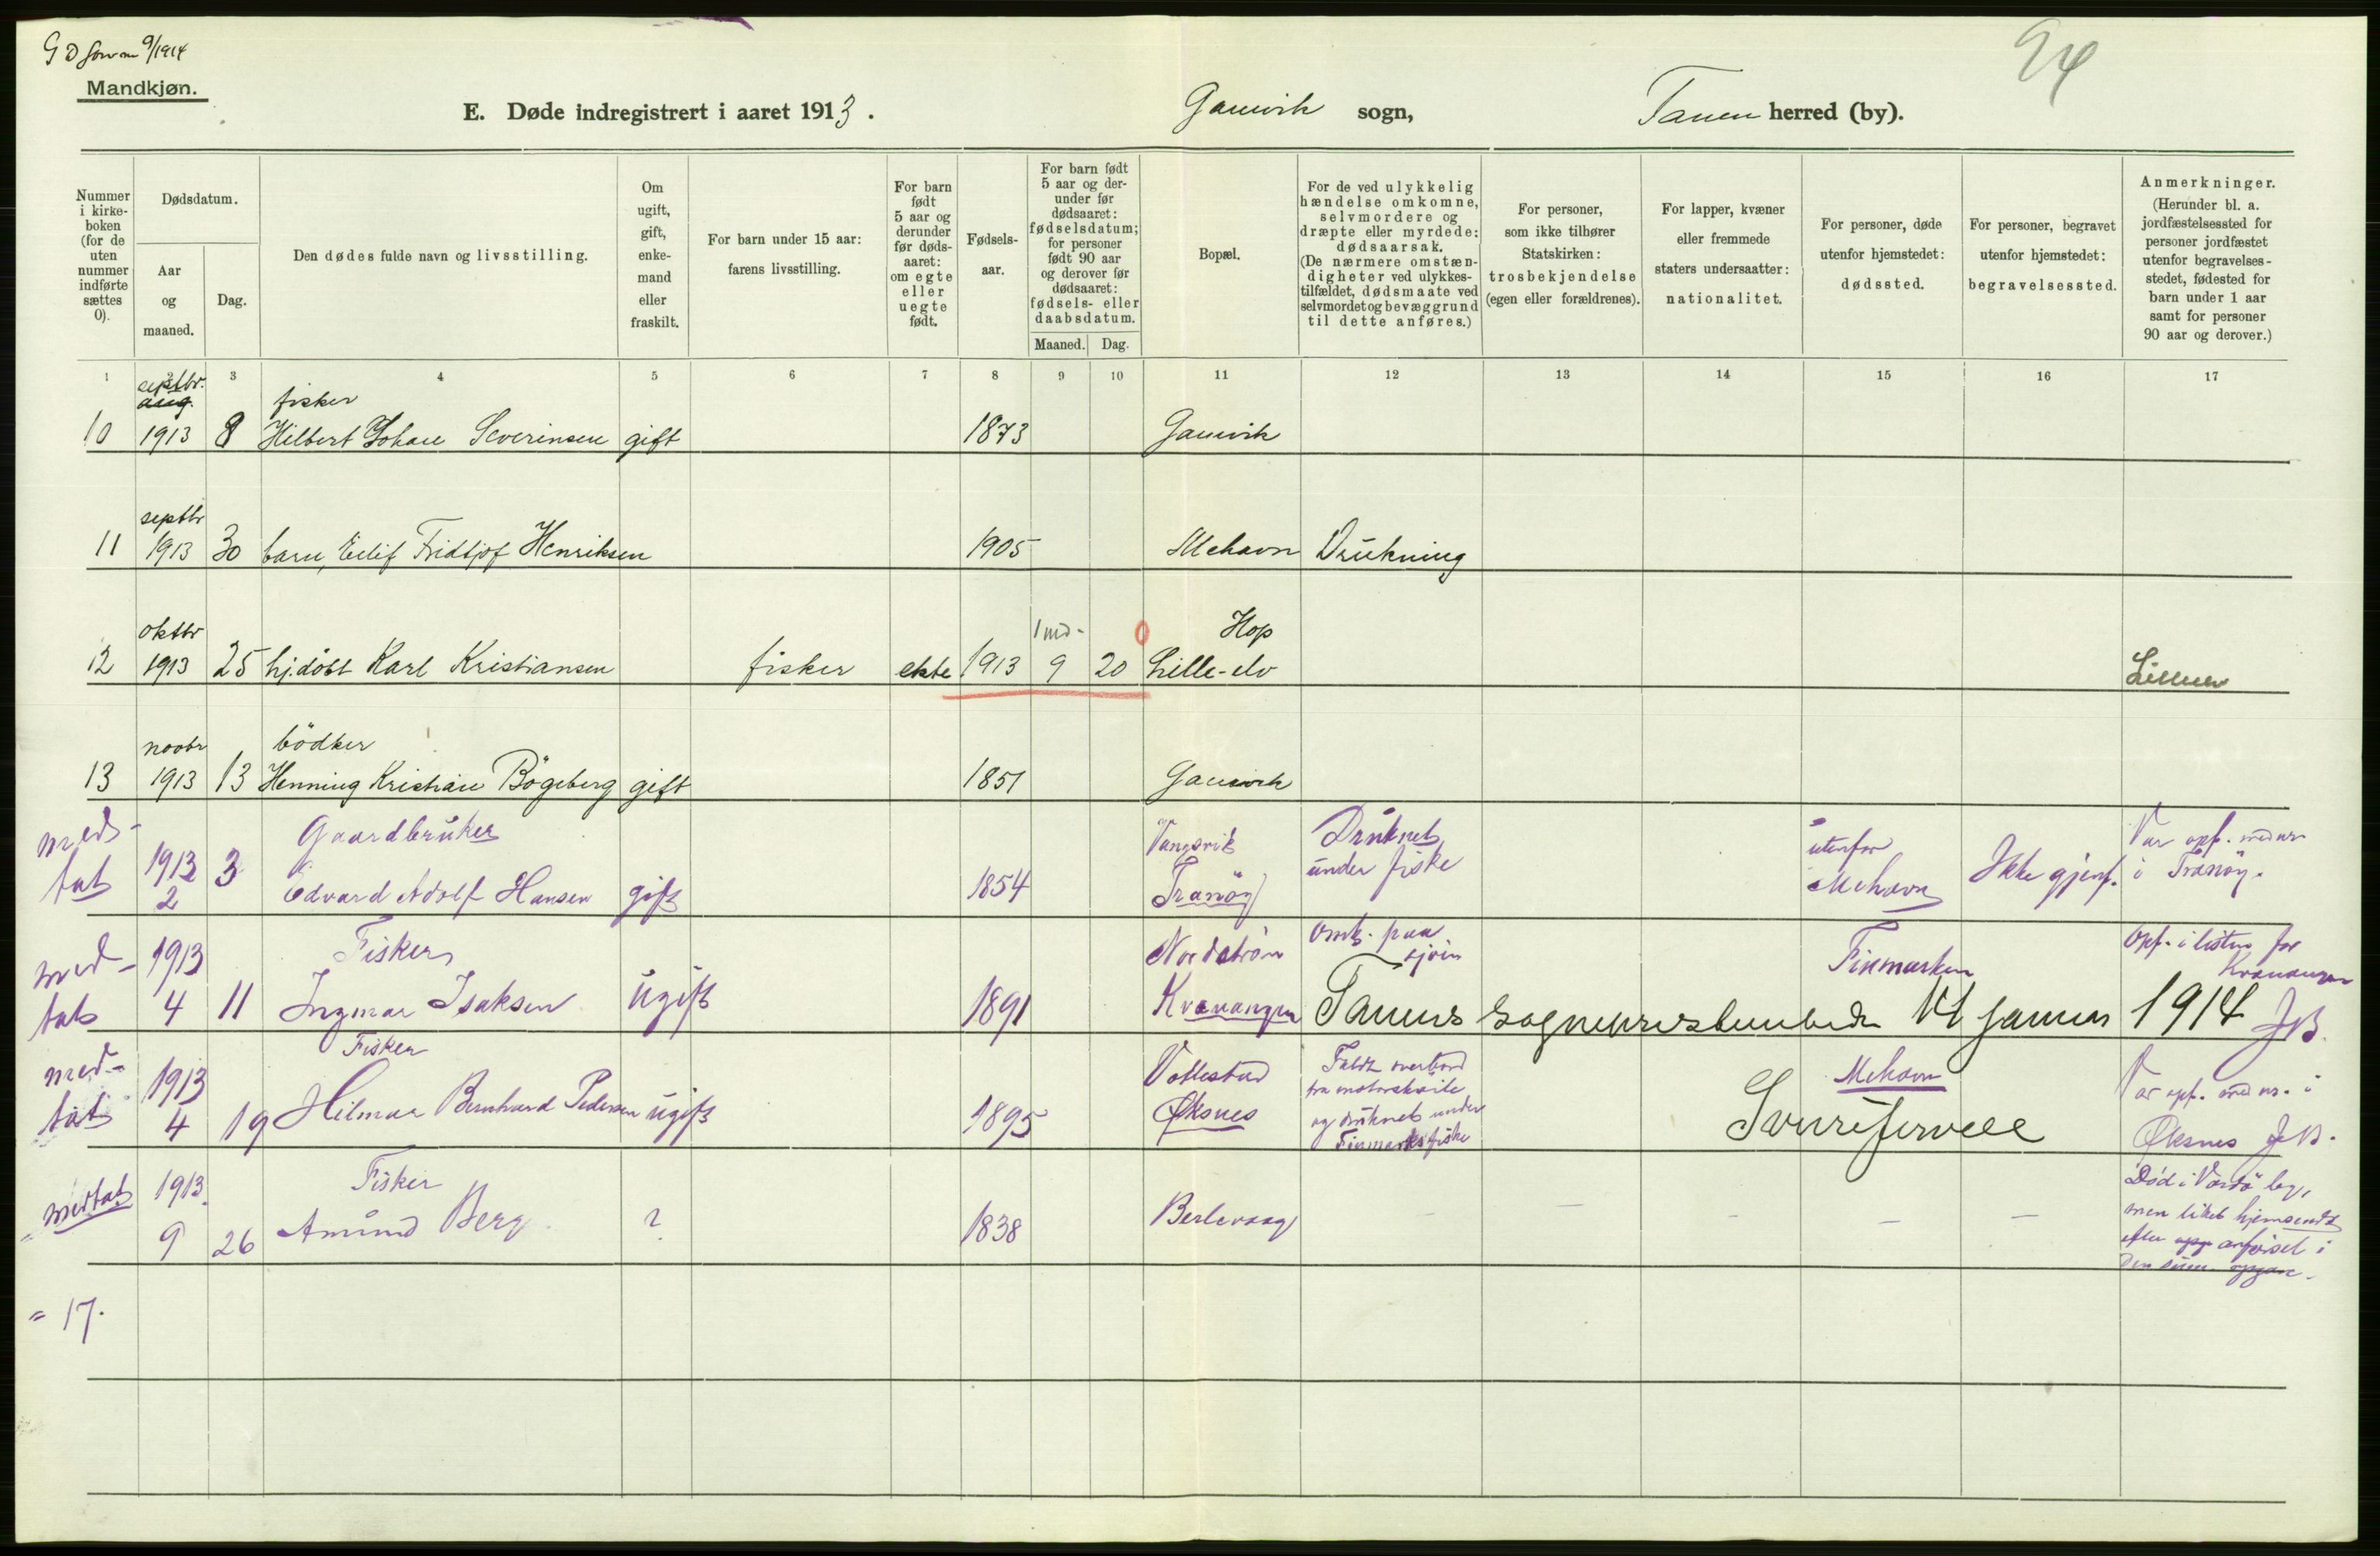 9/1914
94
Mandkjøn.
E. Døde indregistrert i aaret 1913. Gamvik sogn, Tanen herred (by).
Nummer i kirke-boken (for de uten nummer indførte sættes 0).
Dødsdatum.
Aar og maaned.
Dag.
Den dødes fulde navn og livsstilling.
Om ugift, gift, enke-mand eller fraskilt.
For barn under 15 aar: farens livsstilling.
For barn født 5 aar og derunder før døds-aaret: om egte eller uegte født.
Fødsels-aar.
For barn født 5 aar og der-under før dødsaaret: fødselsdatum; for personer født 90 aar og derover før dødsaaret: fødsels- eller daabsdatum.
Maaned. Dag.
Bopæl.
For de ved ulykkelig hændelse omkomne, selvmordere og dræpte eller myrdede: dødsaarsak. (De nærmere omstæn-digheter ved ulykkes-tilfældet, dødsmaate ved selvmordet og bevæggrund til dette anføres.)
For personer, som ikke tilhører Statskirken: trosbekjendelse (egen eller forældrenes).
For lapper, kvæner eller fremmede staters undersaatter: nationalitet.
For personer, døde utenfor hjemstedet: dødssted.
For personer, begravet utenfor hjemstedet: begravelsessted.
Anmerkninger. (Herunder bl. a. jordfæstelsessted for personer jordfæstet utenfor begravelses-stedet, fødested for barn under 1 aar samt for personer 90 aar og derover.)
1 2 3 4 5 6 7 8 9 10 11 12 13 14 15 16 17
septbr. aug. fisker
10 1913 8 Hilbert Johan Severinsen gift 1873 Gamvik
septbr
11 1913 30 barn, Eilif Fridtjof Henriksen 1905 Mehavn Drukning
oktbr 1 md- 0 Hop
12 1913 25 hj.døbt Karl Kristiansen fisker ekte 1913 9 20 Lille-elv Lilleelv
novbr bödker
13 1913 13 Henning Kristian Bögeberg gift 1851 Gamvik
med- Gaardbruker Vangsvik Druknet utenfor Var opf. med nr.
tat 1913 2 3 Edvard Adolf Hansen gift 1854 Tranöy under fiske Mehavn Ikke gjenf. i Tranöy.
med- 1913 Fisker Nordstrøm omk. paa sjøen Finmarken Opf. i listen for Kvænangen
tat 4 11 Ingmar Isaksen ugift 1891 Kvænangen
Tanens 14 januar 1914 JB.
med- 1913 Fisker Faldt overbord Mehavn Var opf. med nr. i
tat 4 19 Hilmar Bernhard Pedersen ugift 1895 Øksnes fra motorskøite og druknet under Finmarksfiske Øksnes JB.
medtat 1913 Fisker Död i Vardö by,
9 26 Amund Berg ? 1838 Berlevaag — — — — — men liket hjemsendt
efter anførsel i
= 17.